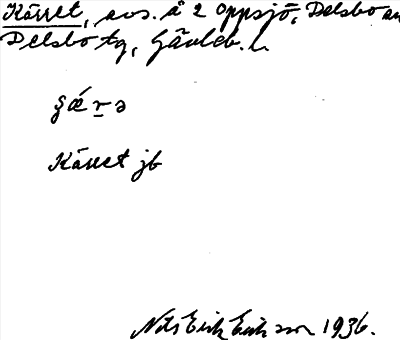 Kärret, avs. å 2 Oppsjö, Delsbo sn
Delsbo tg, Gävleb. l.
Kärret jb
Nils Erik Eriksson 1936.